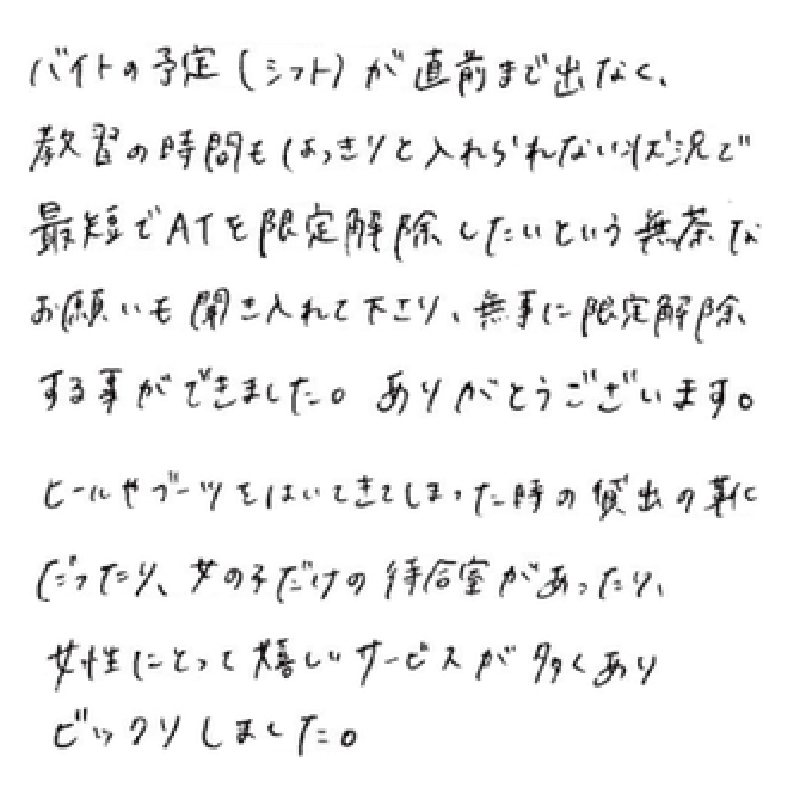 バイトの予定(シフト)が直前まで出なく、
教習の時間もはっきりと入れられない状況で
最短でATを限定解除したいという無茶な
お願いも聞き入れて下さり、無事に限定解除
する事ができました。ありがとうございます。
ヒールやブーツをはいてきてしまった時の貸出の靴に
だったり、女の子だけの待合室があったり、
女性にとって嬉しいサービスが多くあり
ビックリしました。